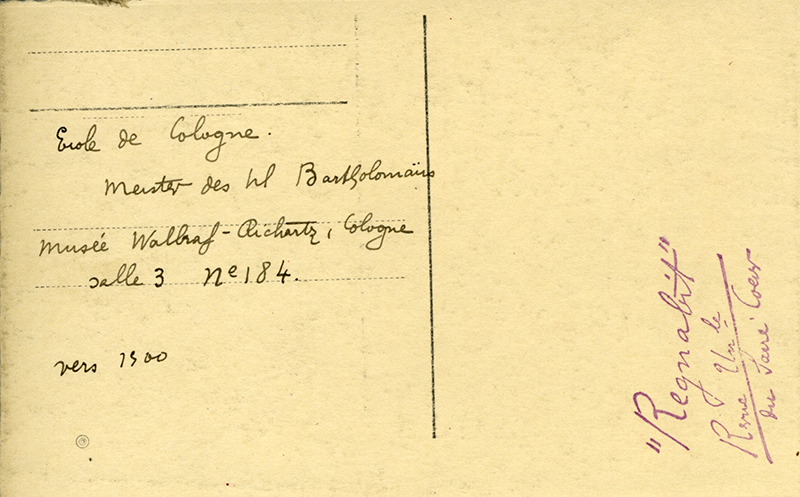 Ecole de Cologne.
Meister des hl Bartholomaïus
Musée Wallraf-Richartz, Cologne
salle 3 Ne 184.
vers 1500
"Regnabit"
Revue Un.le
du Sacré Coeur